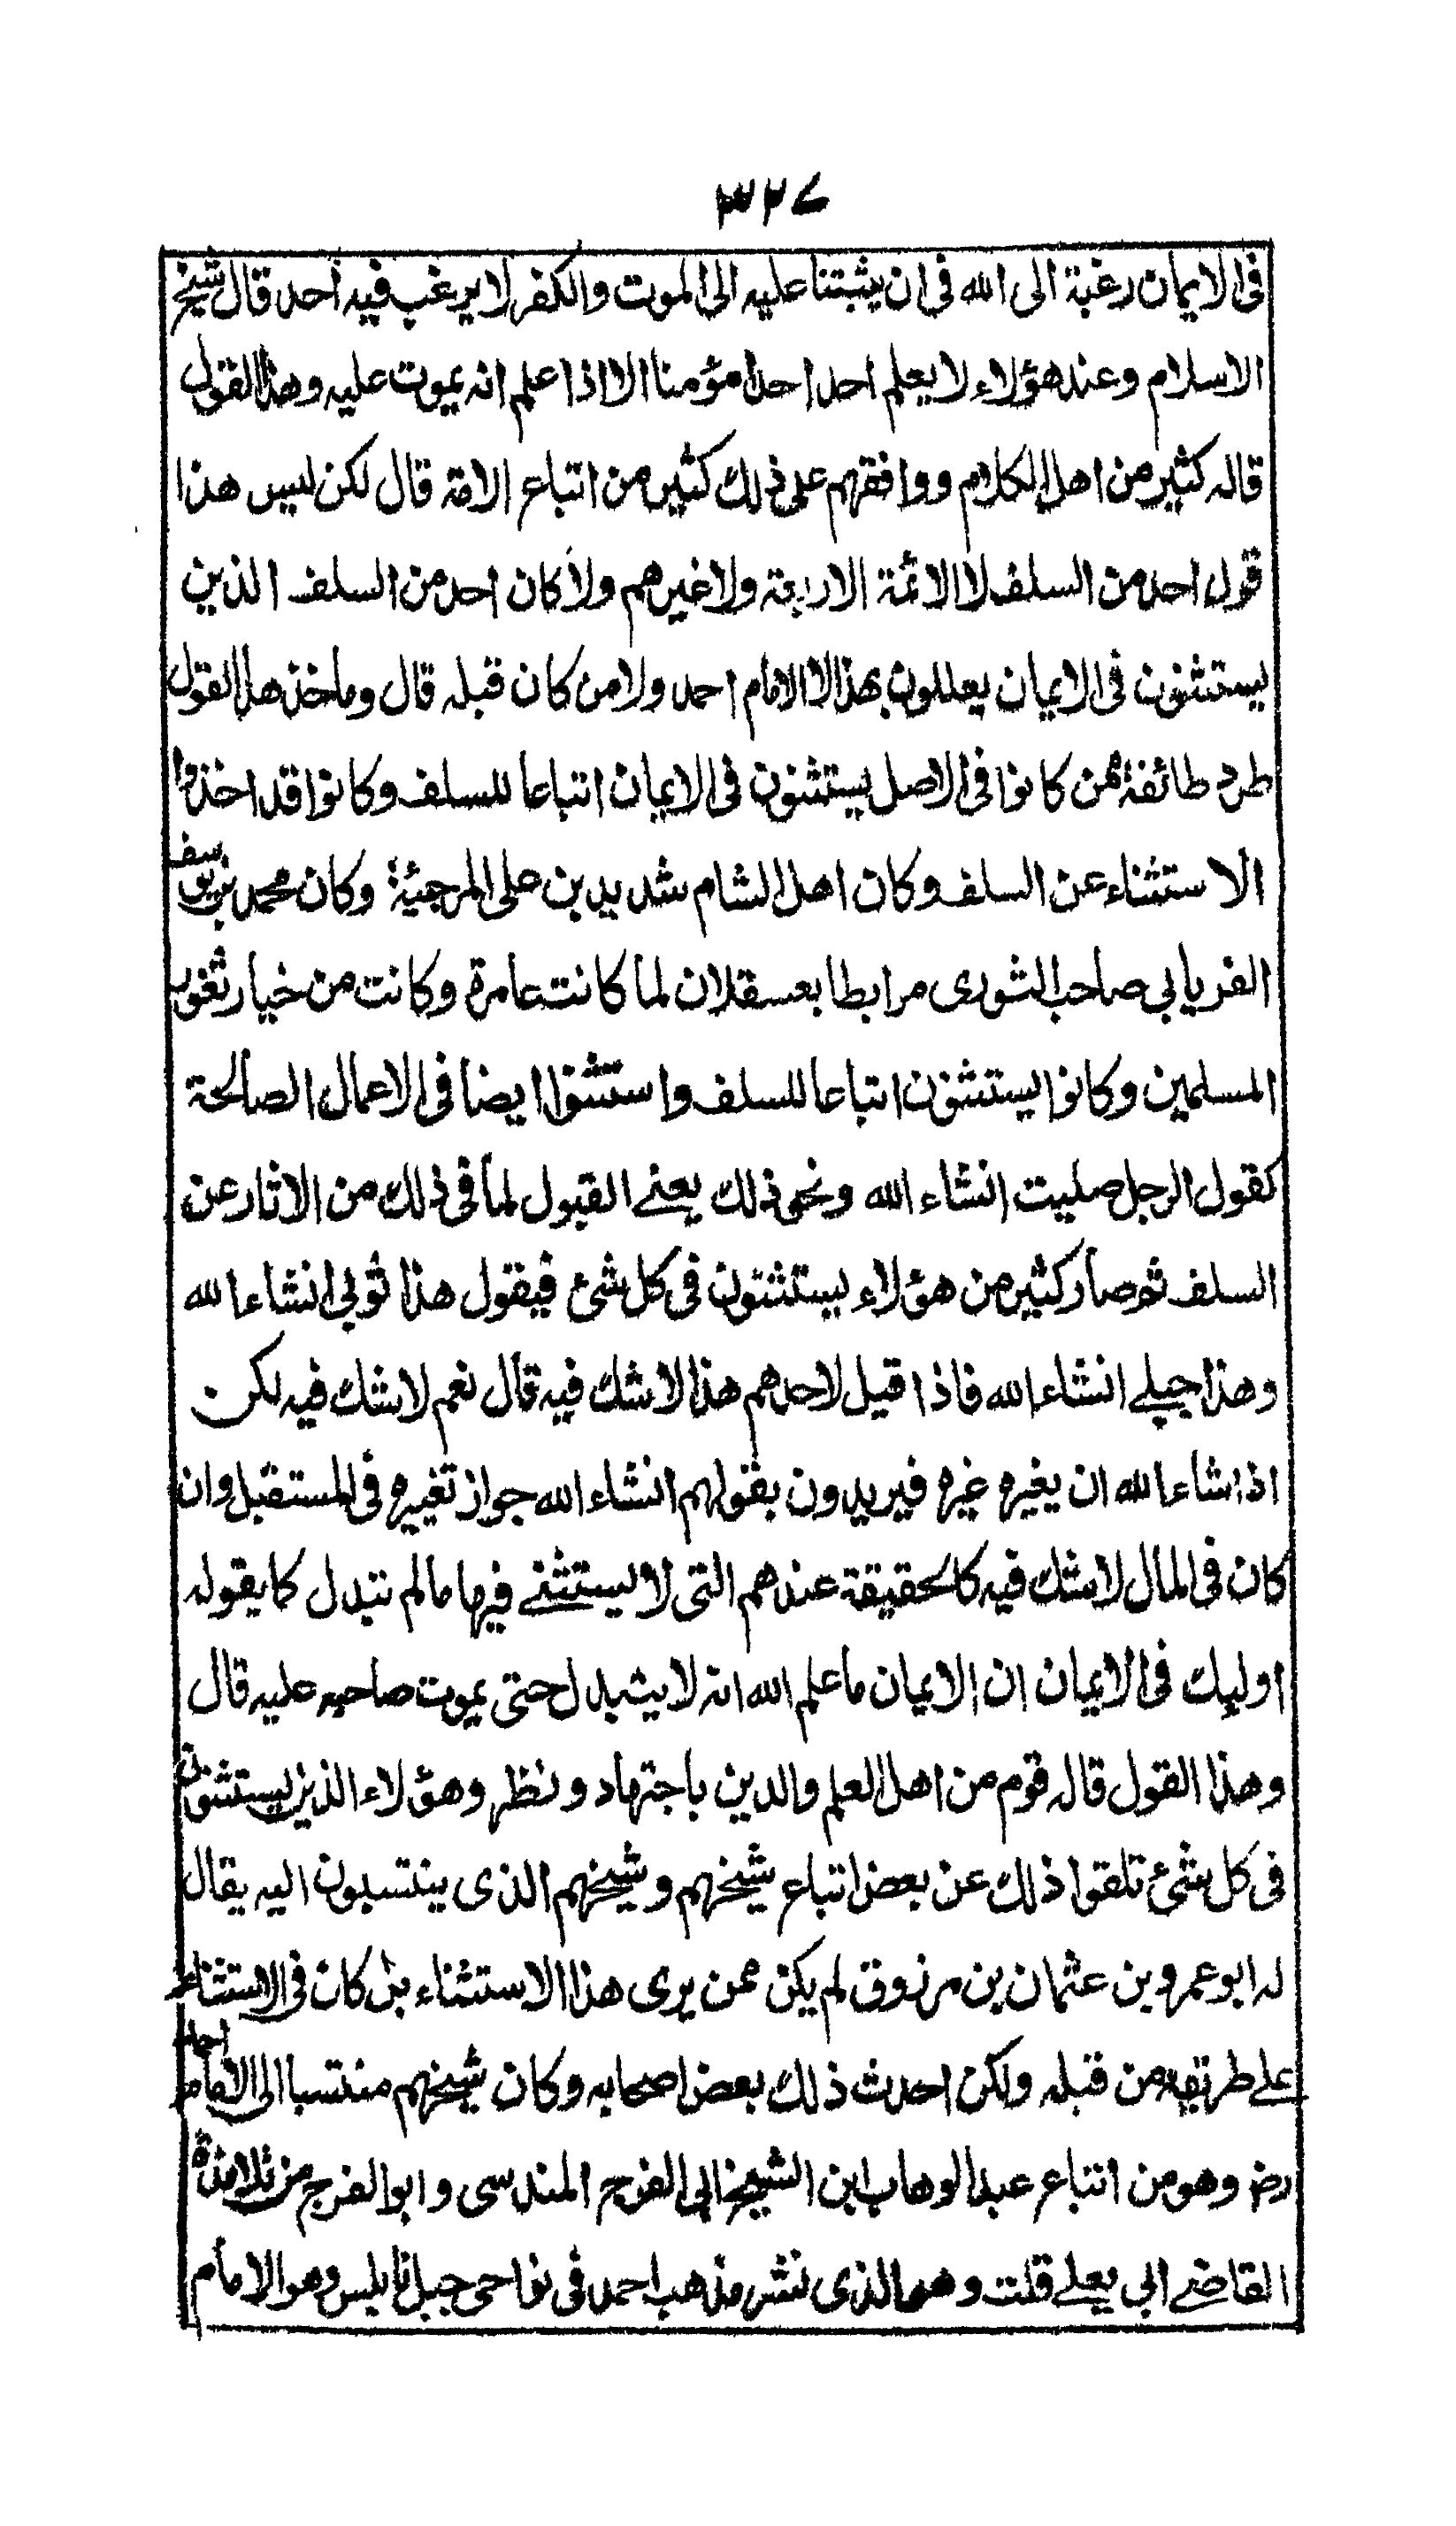 ٣٢٧
فى الايمان رغبة الى الله فى ان يثبتنا عليه الى الموت والكفر لا يرغب فيه احد قال شيخ
الاسلام وعند هؤلاء لا يعلم احد احدا مؤمنا الا اذا علم انه يموت عليه وهذا القول
قاله كثير من اهل الكلام ووافقهم على ذلك كثير من اتباع الائمة قال لكن ليس هذا
قول احد من السلف لا الائمة الاربعة ولا غيرهم ولا كان احد من السلف الذين
يستثنون فى الايمان يعللون بهذا لا الامام احمد ولا من كان قبله قال وماخذ هذا القول
طرد طائفة ممن كانوا فى الاصل يستثنون فى الايمان اتباعا للسلف وكانوا قد اخذوا
الاستثناء عن السلف وكان اهل الشام شديدين على المرجيئة وكان محمد بن يوسف
الفريابي صاحب الثورى مرابطا بعسقلان لما كانت عامرة وكانت من خيار ثغور
المسلمين وكانوا يستثنون اتباعا للسلف واستثنوا ايضا فى الاعمال الصالحة
كقول الرجل صليت انشاء الله ونحو ذلك يعنے القبول لما فى ذلك من الاثار عن
السلف ثم صار كثير من هؤلاء يستثنون فى كل شئ فيقول هذا ثوبي انشاء الله
وهذا حبلے انشاء الله فاذا قيل لاحدهم هذا لا شك فيه قال نعم لا شك فيه لكن
اذا شاء الله ان يغيره غيره فيريدون بقولهم انشاء الله جواز تغييره فى المستقبل وان
كان فى المال لا شك فيه كالحقيقة عندهم التى لا يستثنے فيها مالم تتبدل كما يقوله
اوليك فى الايمان ان الايمان ما علم الله انه لا يتبدل حتى يموت صاحبه عليه قال
وهذا القول قاله قوم من اهل العلم والدين باجتهاد ونظر وهؤلاء الذين يستثنون
فى كل شئ تلقوا ذلك عن بعض اتباع شيخهم وشيخهم الذى ينتسبون اليه يقال
له ابو عمرو بن عثمان بن مرزوق لم يكن ممن يرى هذا الاستثناء بل كان فى الاستثناء
علے طريقة من قبله ولكن احدث ذلك بعض اصحابه وكان شيخهم منتسبا الى الامام احمد
رض وهو من اتباع عبد الوهاب ابن الشيخ ابى الفرج المندسى وابو الفرج من تلامذة
القاضے ابي يعلے قلت وهو الذى نشر مذهب احمد فى نواحى جبل نابلس وهو الامام